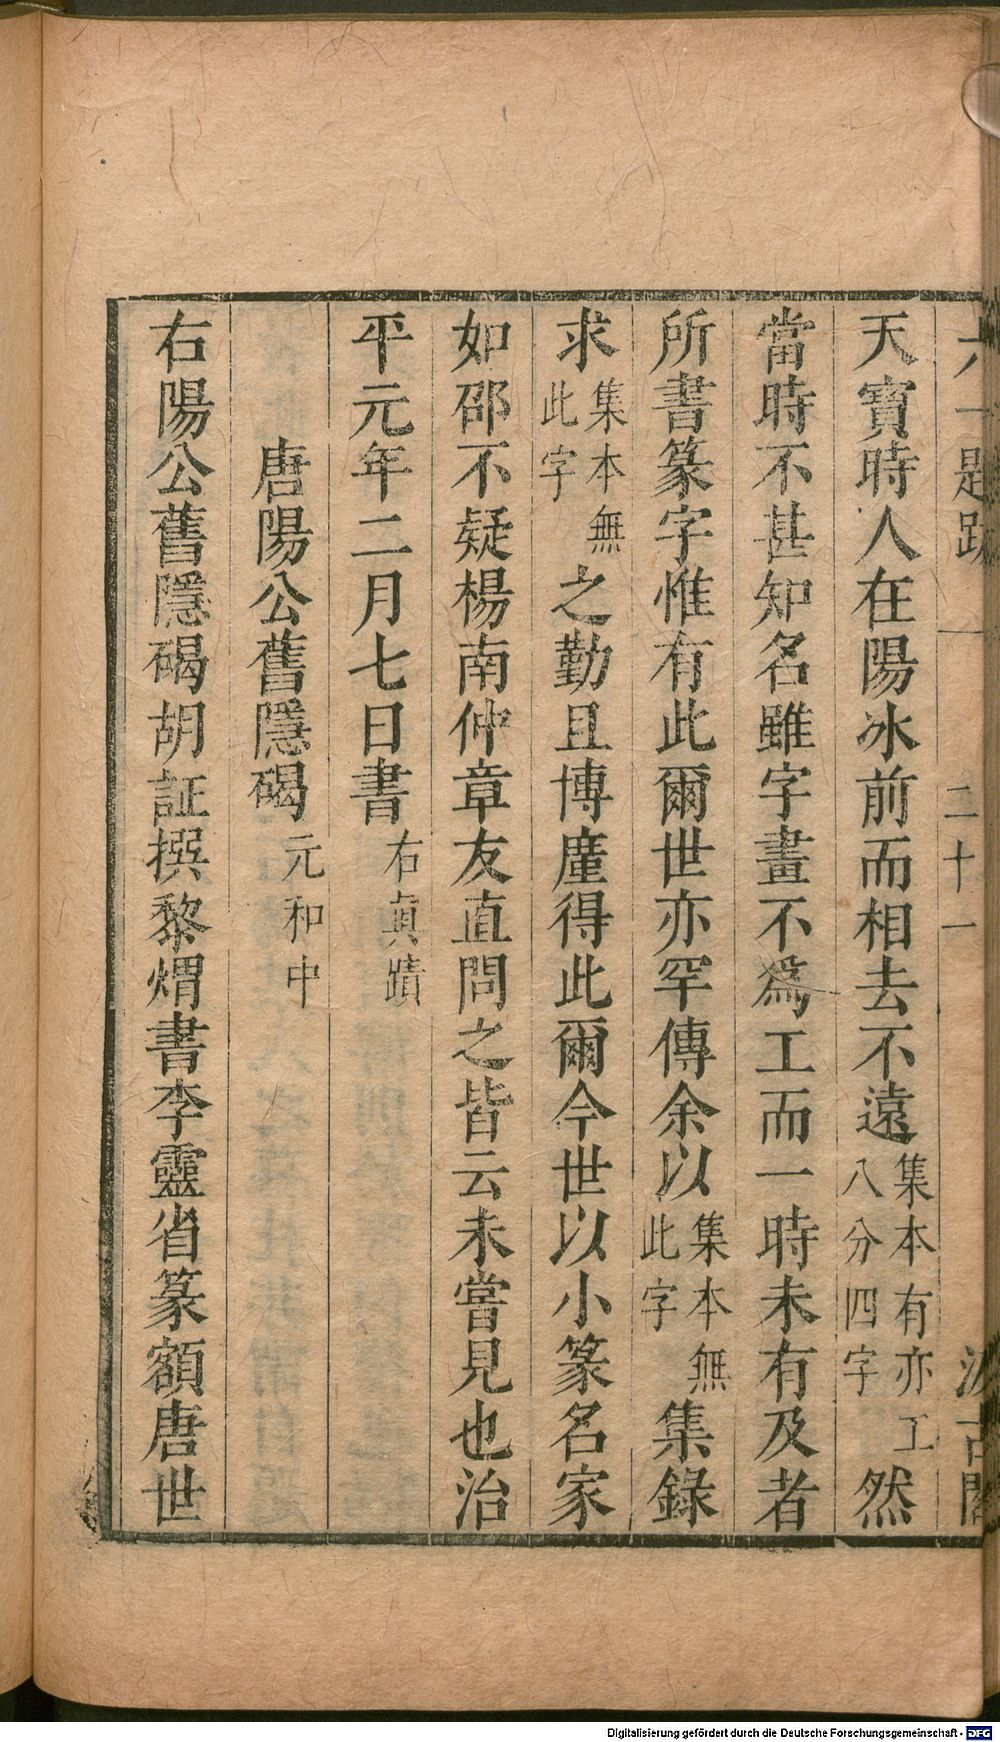 六一題跋 二十一 汲古閣
天寶時人在陽冰前而相去不遠集本有亦工八分四字然
當時不甚知名雖字畫不爲工而一時未有及者
所書篆字惟有此爾世亦罕傳余以集本無此字集錄
求集本無此字之勤且博廑得此爾今世以小篆名家
如邵不疑楊南仲章友直問之皆云未嘗見也治
平元年二月七日書右眞蹟
唐陽公舊隱碣元和中
右陽公舊隱碣胡証撰黎煟書李靈省篆額唐世
Digitalisierung gefördert durch die Deutsche Forschungsgemeinschaft - DFG